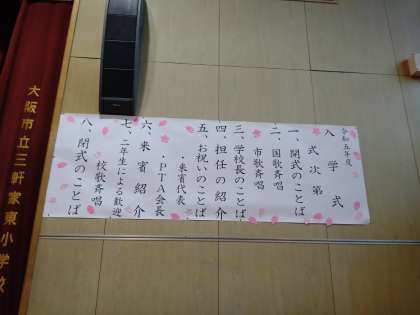 令和五年度
入学式
式次第
一、開式のことば
二、国歌斉唱
市歌斉唱
三、学校長のことば
四、担任の紹介
五、お祝いのことば
・来賓代表
・PTA会長
六、来賓紹介
七、二年生による歓迎
校歌斉唱
八、閉式のことば
大阪市立三軒家東小学校